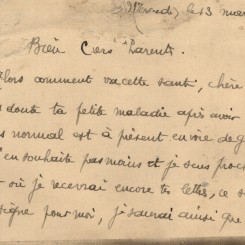 le 13 mars
Bien Cers Parents.
Alors comment va cette santé, chère
doute ta petite maladie après avoir
normal est à présent en voie de g
en souhaite pas mains et je suis proch
où je recevrai encore ta lettre, ce s
signe pour moi, je saurai ainsi que